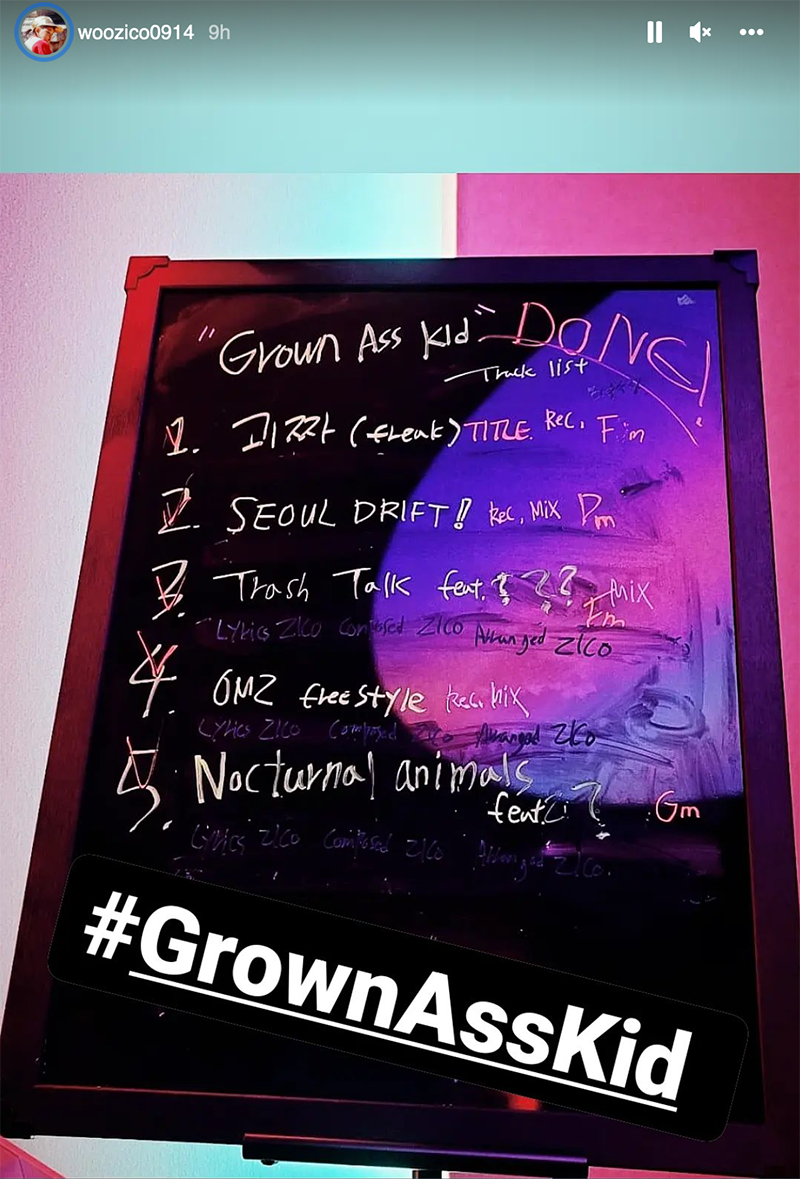 woozico0914 9h
"Grown Ass Kid" DONE!
Track list
1. 괴짜 (freak) TITLE. Rec. Fm
2. SEOUL DRIFT! Rec, Mix Dm
3. Trash Talk feat. ??? Mix
Fm
Lyrics ZICO Composed ZICO Arranged ZICO
4. OMZ freestyle Rec. Mix
Lyrics ZICO Composed ZICO Arranged ZICO
5. Nocturnal animals
feat. ? Gm
Lyrics ZICO Composed ZICO Arranged ZICO.
#GrownAssKid